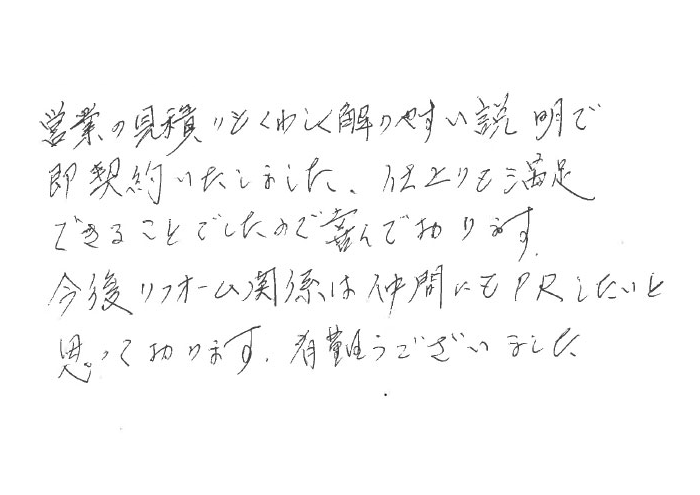 営業の見積りもくわしく解りやすい説明で
即契約いたしました、仕上りも満足
できることでしたので喜んでおります。
今後リフォーム関係は仲間にもPRしたいと
思っております。有難うございました